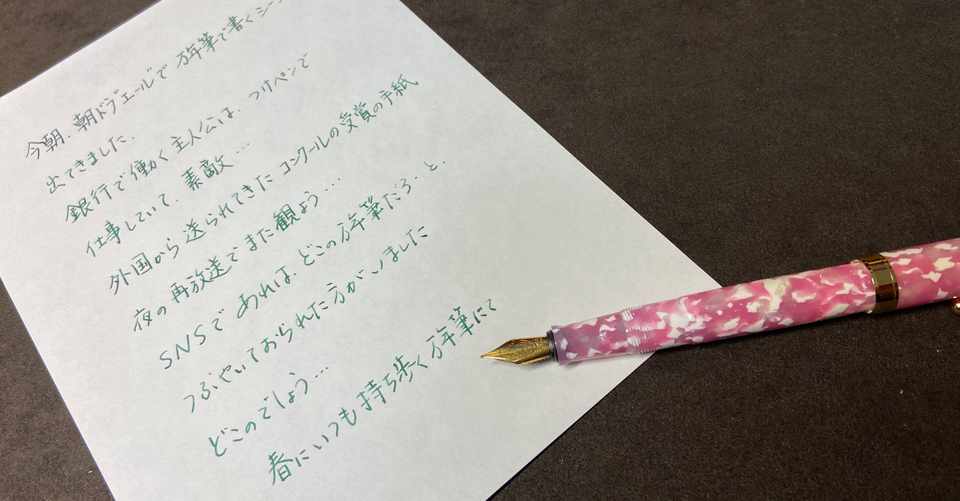 今朝、朝ドラ エールで 万年筆で書くシー
出てきました、
銀行で働く主人公は、つけペンで
仕事していて、素敵…
外国から送られてきた コンクールの受賞の手紙
夜の再放送でまた観よう…
SNSで あれは、どこの万年筆だろ・と、
つぶやいておられた方がいました
どこのでしょう…
春にいつも持ち歩く万年筆にて